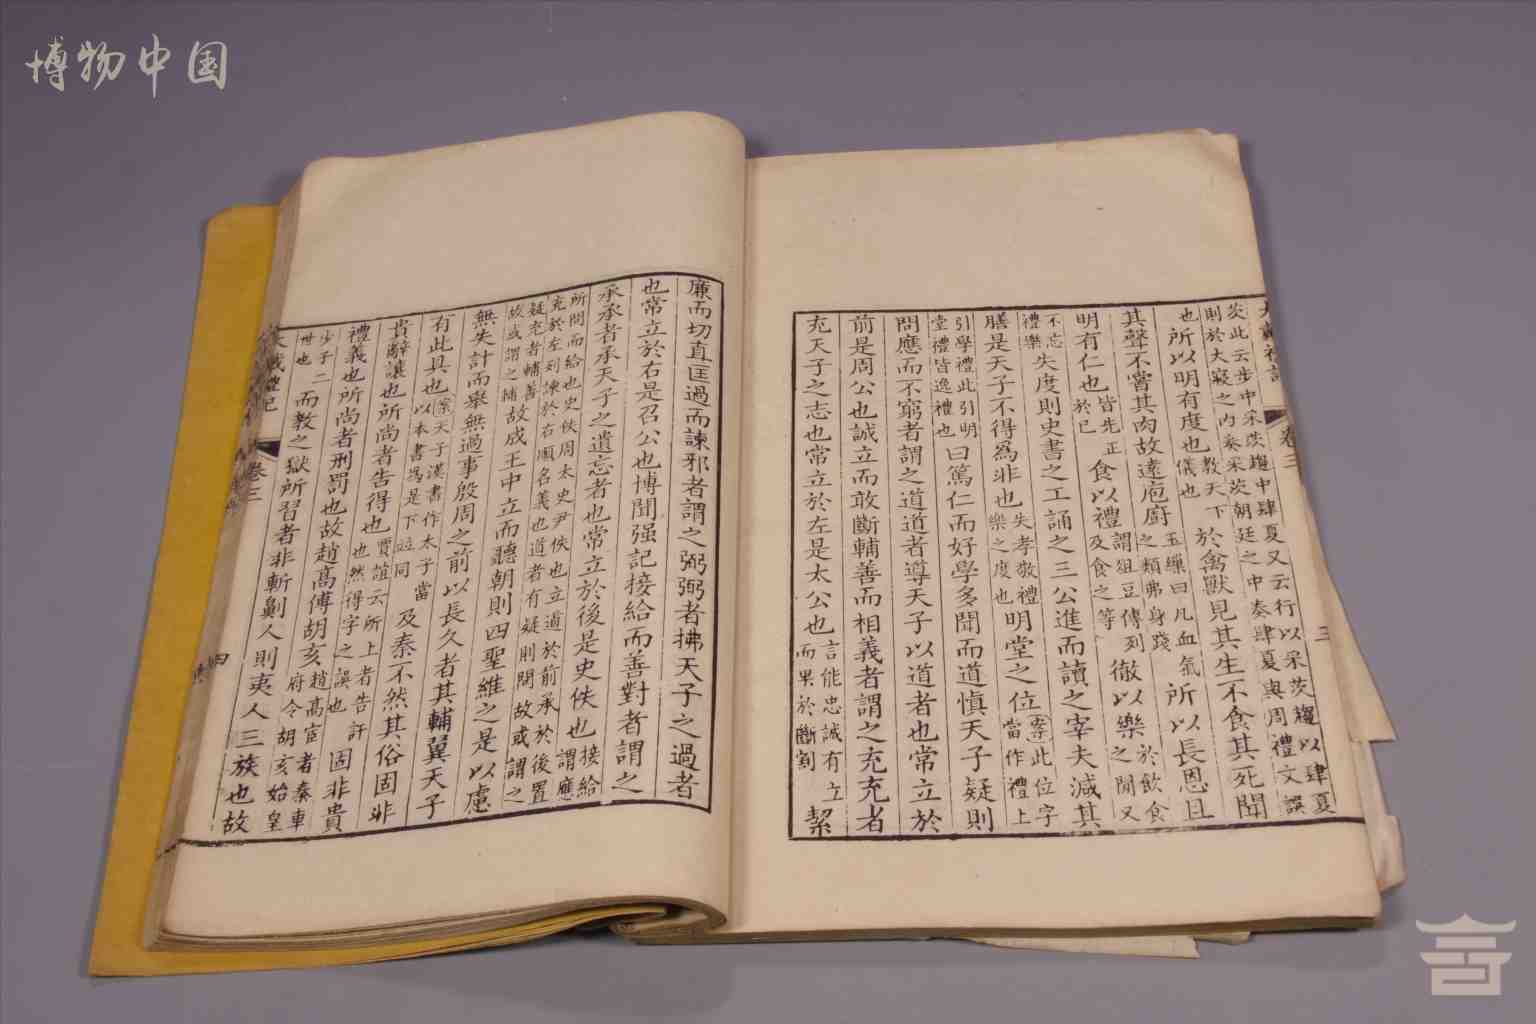 博物中国
大戴禮記 卷三 三
茨此云步中采茨趨中肆夏又云行以采茨趨以肆夏
則於大寢之內奏采茨朝廷之中奏肆夏與周禮文誤
也所以明有度也教天下儀也於禽獸見其生不食其死聞
其聲不嘗其肉故遠庖廚玉繅曰凡血氣之類弗身踐所以長恩且
明有仁也皆先正於已食以禮謂狙豆傳列及食之等徹以樂於飲食之間又
不忘禮樂失度則史書之工誦之三公進而讀之宰夫減其
膳是天子不得爲非也失孝敬禮樂之度也明堂之位案此位字當作禮上
引學禮此引明堂禮皆逸禮也曰篤仁而好學多聞而道慎天子疑則
問應而不窮者謂之道道者導天子以道者也常立於
前是周公也誠立而敢斷輔善而相義者謂之充充者
充天子之志也常立於左是太公也言能忠誠有立而果於斷割絜
廉而切直匡過而諫邪者謂之弼弼者拂天子之過者
也常立於右是召公也博聞强記接給而善對者謂之
承承者承天子之遺忘者也常立於後是史佚也接給謂應
所問而給也史佚周太史尹佚也立道於前承於後置
充於左列諫於右順名義也道者有疑則問故或謂之
疑充者輔善故或謂之輔故成王中立而聽朝則四聖維之是以慮
無失計而舉無過事殷周之前以長久者其輔翼天子
有此具也案天子漢書作太子當以本書爲是下並同及秦不然其俗固非
貴辭讓也所尚者告得也賈誼云所上者告訐也然得字之誤也固非貴
禮義也所尚者刑罰也故趙高傅胡亥趙高宦者秦車府令胡亥始皇
少子二世也而教之獄所習者非斬劓人則夷人三族也故
大戴禮記 卷三 四